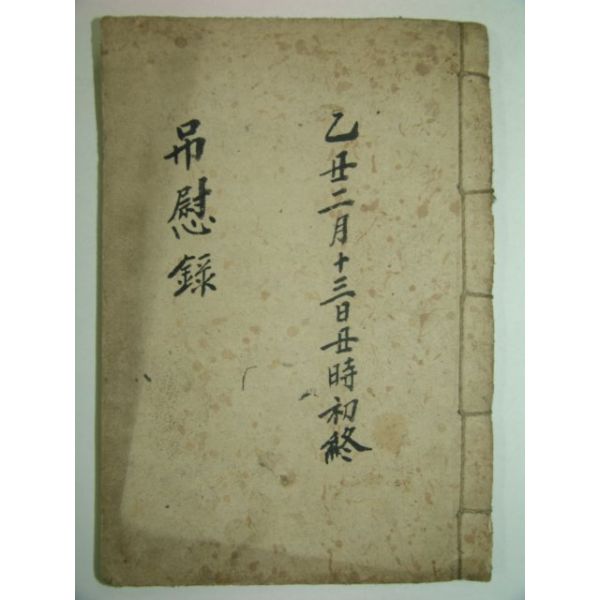 乙丑二月十三日丑時初終
吊慰錄